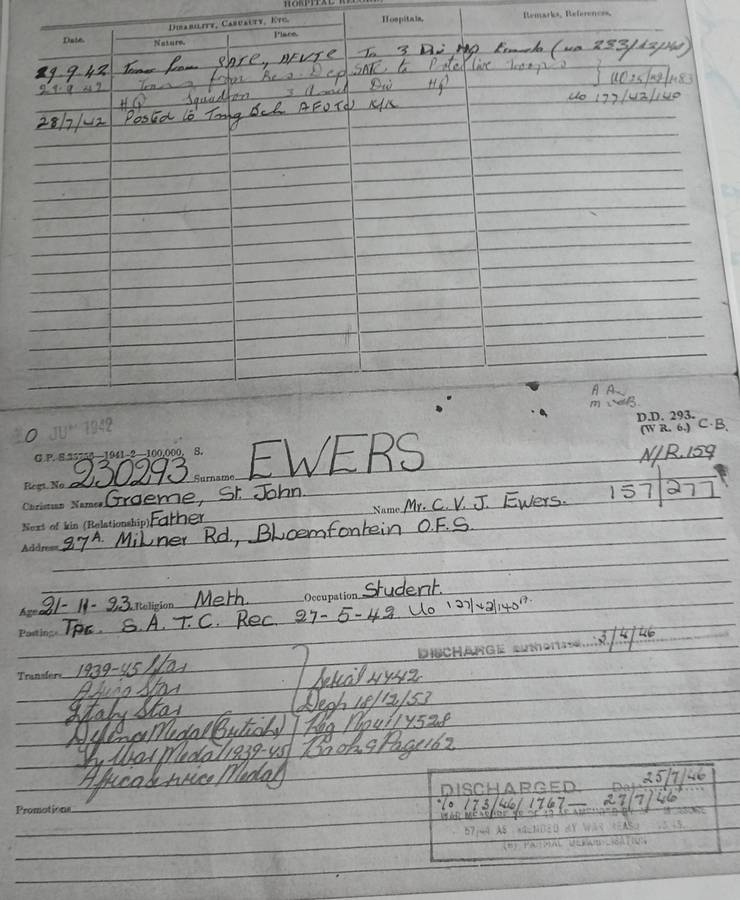 HOSPITAL RECORD
DISABILITY, CASUALTY, ETC.
Hospitals.
Remarks, References.
Date.
Nature.
Place.
29.9.42 Trans from SATC, AFVTC To 3 Div HQ (UO 253/42/
29.9.42 Trans from Res. Dep SATC to Protective Troops
HQ Squadron 3 Armd Div HQ
UO 177/42/140
28/7/42 Posted to Trng Sch AFVTC K/K
JUN 1942
D.D. 293.
(W R. 6.) C.B.
G.P. S.25756—1941-2—100,000. S.
N/R.159
Regt. No 230293 Surname EWERS
157/277
Christian Names Graeme, St. John.
Next of kin (Relationship) Father Name Mr. C. V. J. Ewers.
Address 27A. Milner Rd., Bloemfontein O.F.S.
Age 21-11-23. Religion Meth. Occupation Student.
Posting: Tpr. S.A.T.C. Rec. 27-5-42 UO 127/42/140
DISCHARGE authorised 3/4/46
Transfers 1939-45 Star
Africa Star
Italy Star
Defence Medal (British)
War Medal 1939-45
Africa Service Medal
Serial 4442
Desp 18/12/53
Reg
Book 9 Page 162
Promotions
DISCHARGED 25/7/46
% 173/46/1767 — 27/7/46
57/44 AS AMENDED BY WAR MEAS